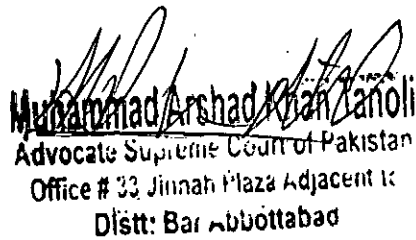 Muhammad Arshad Khan Tanoli
Advocate Supreme Court of Pakistan
Office # 33 Jinnah Plaza Adjacent to
Distt: Bar Abbottabad